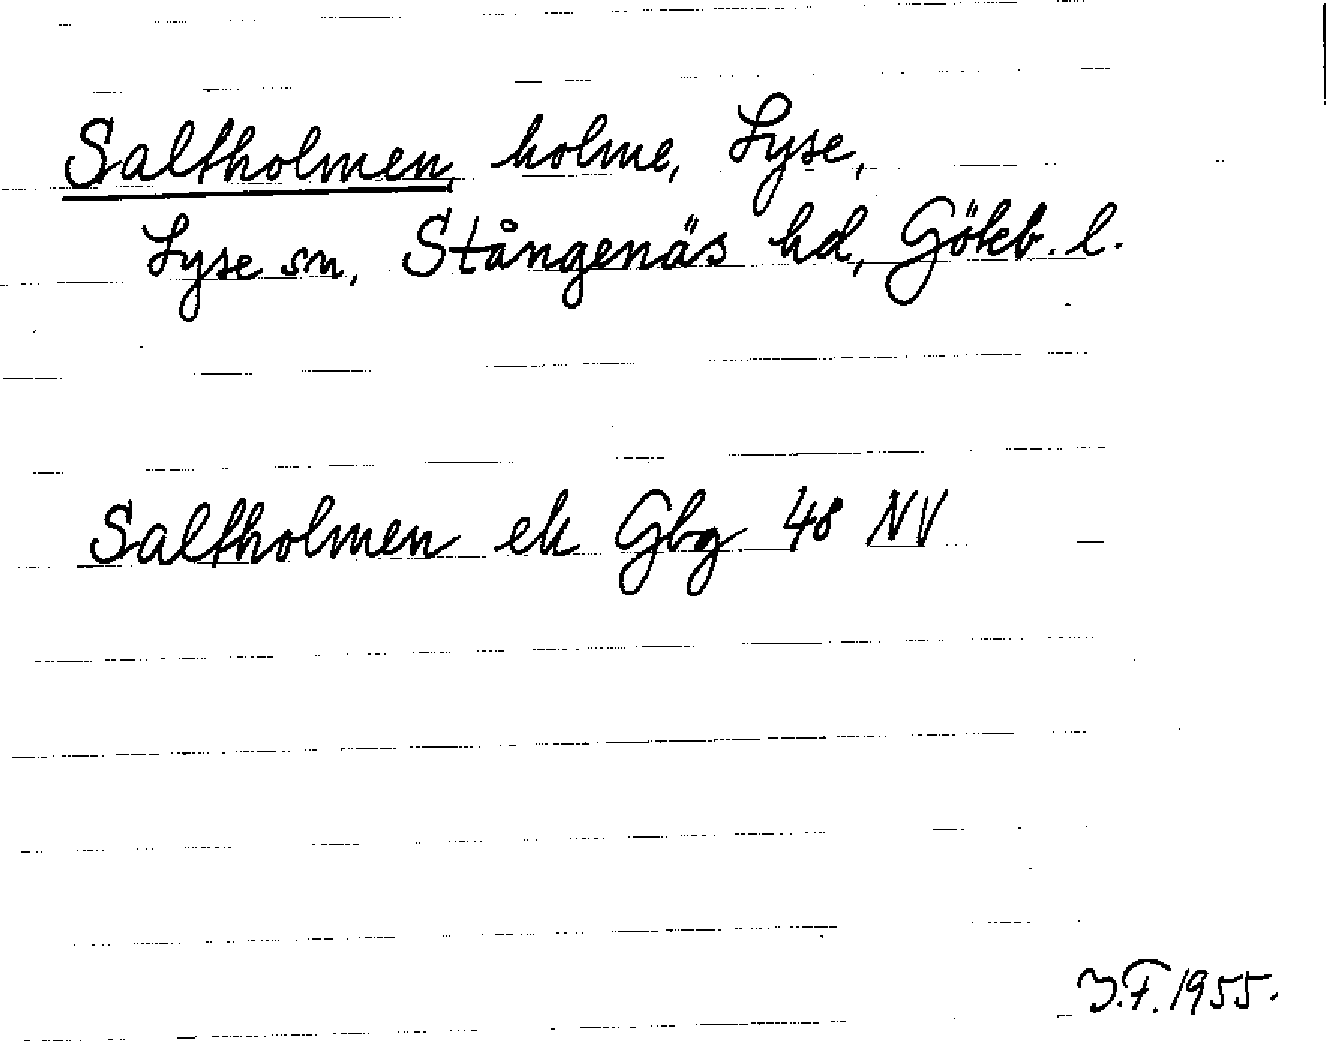 Saltholmen, holme, Lyse,
Lyse sn, Stångenäs hd, Göteb. l.
Saltholmen ek Gbg 48 NV
J.F. 1955.